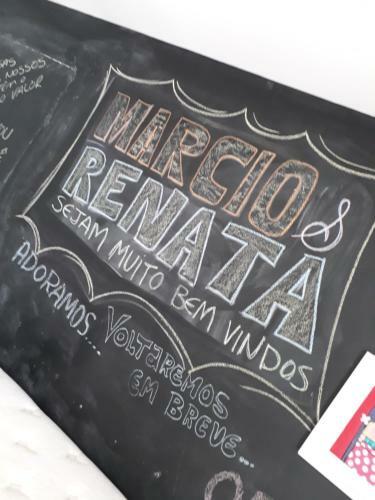 NOSSOS
VALOR
MÁRCIO &
RENATA
SEJAM MUITO BEM VINDOS
ADORAMOS...
VOLTAREMOS
EM BREVE...